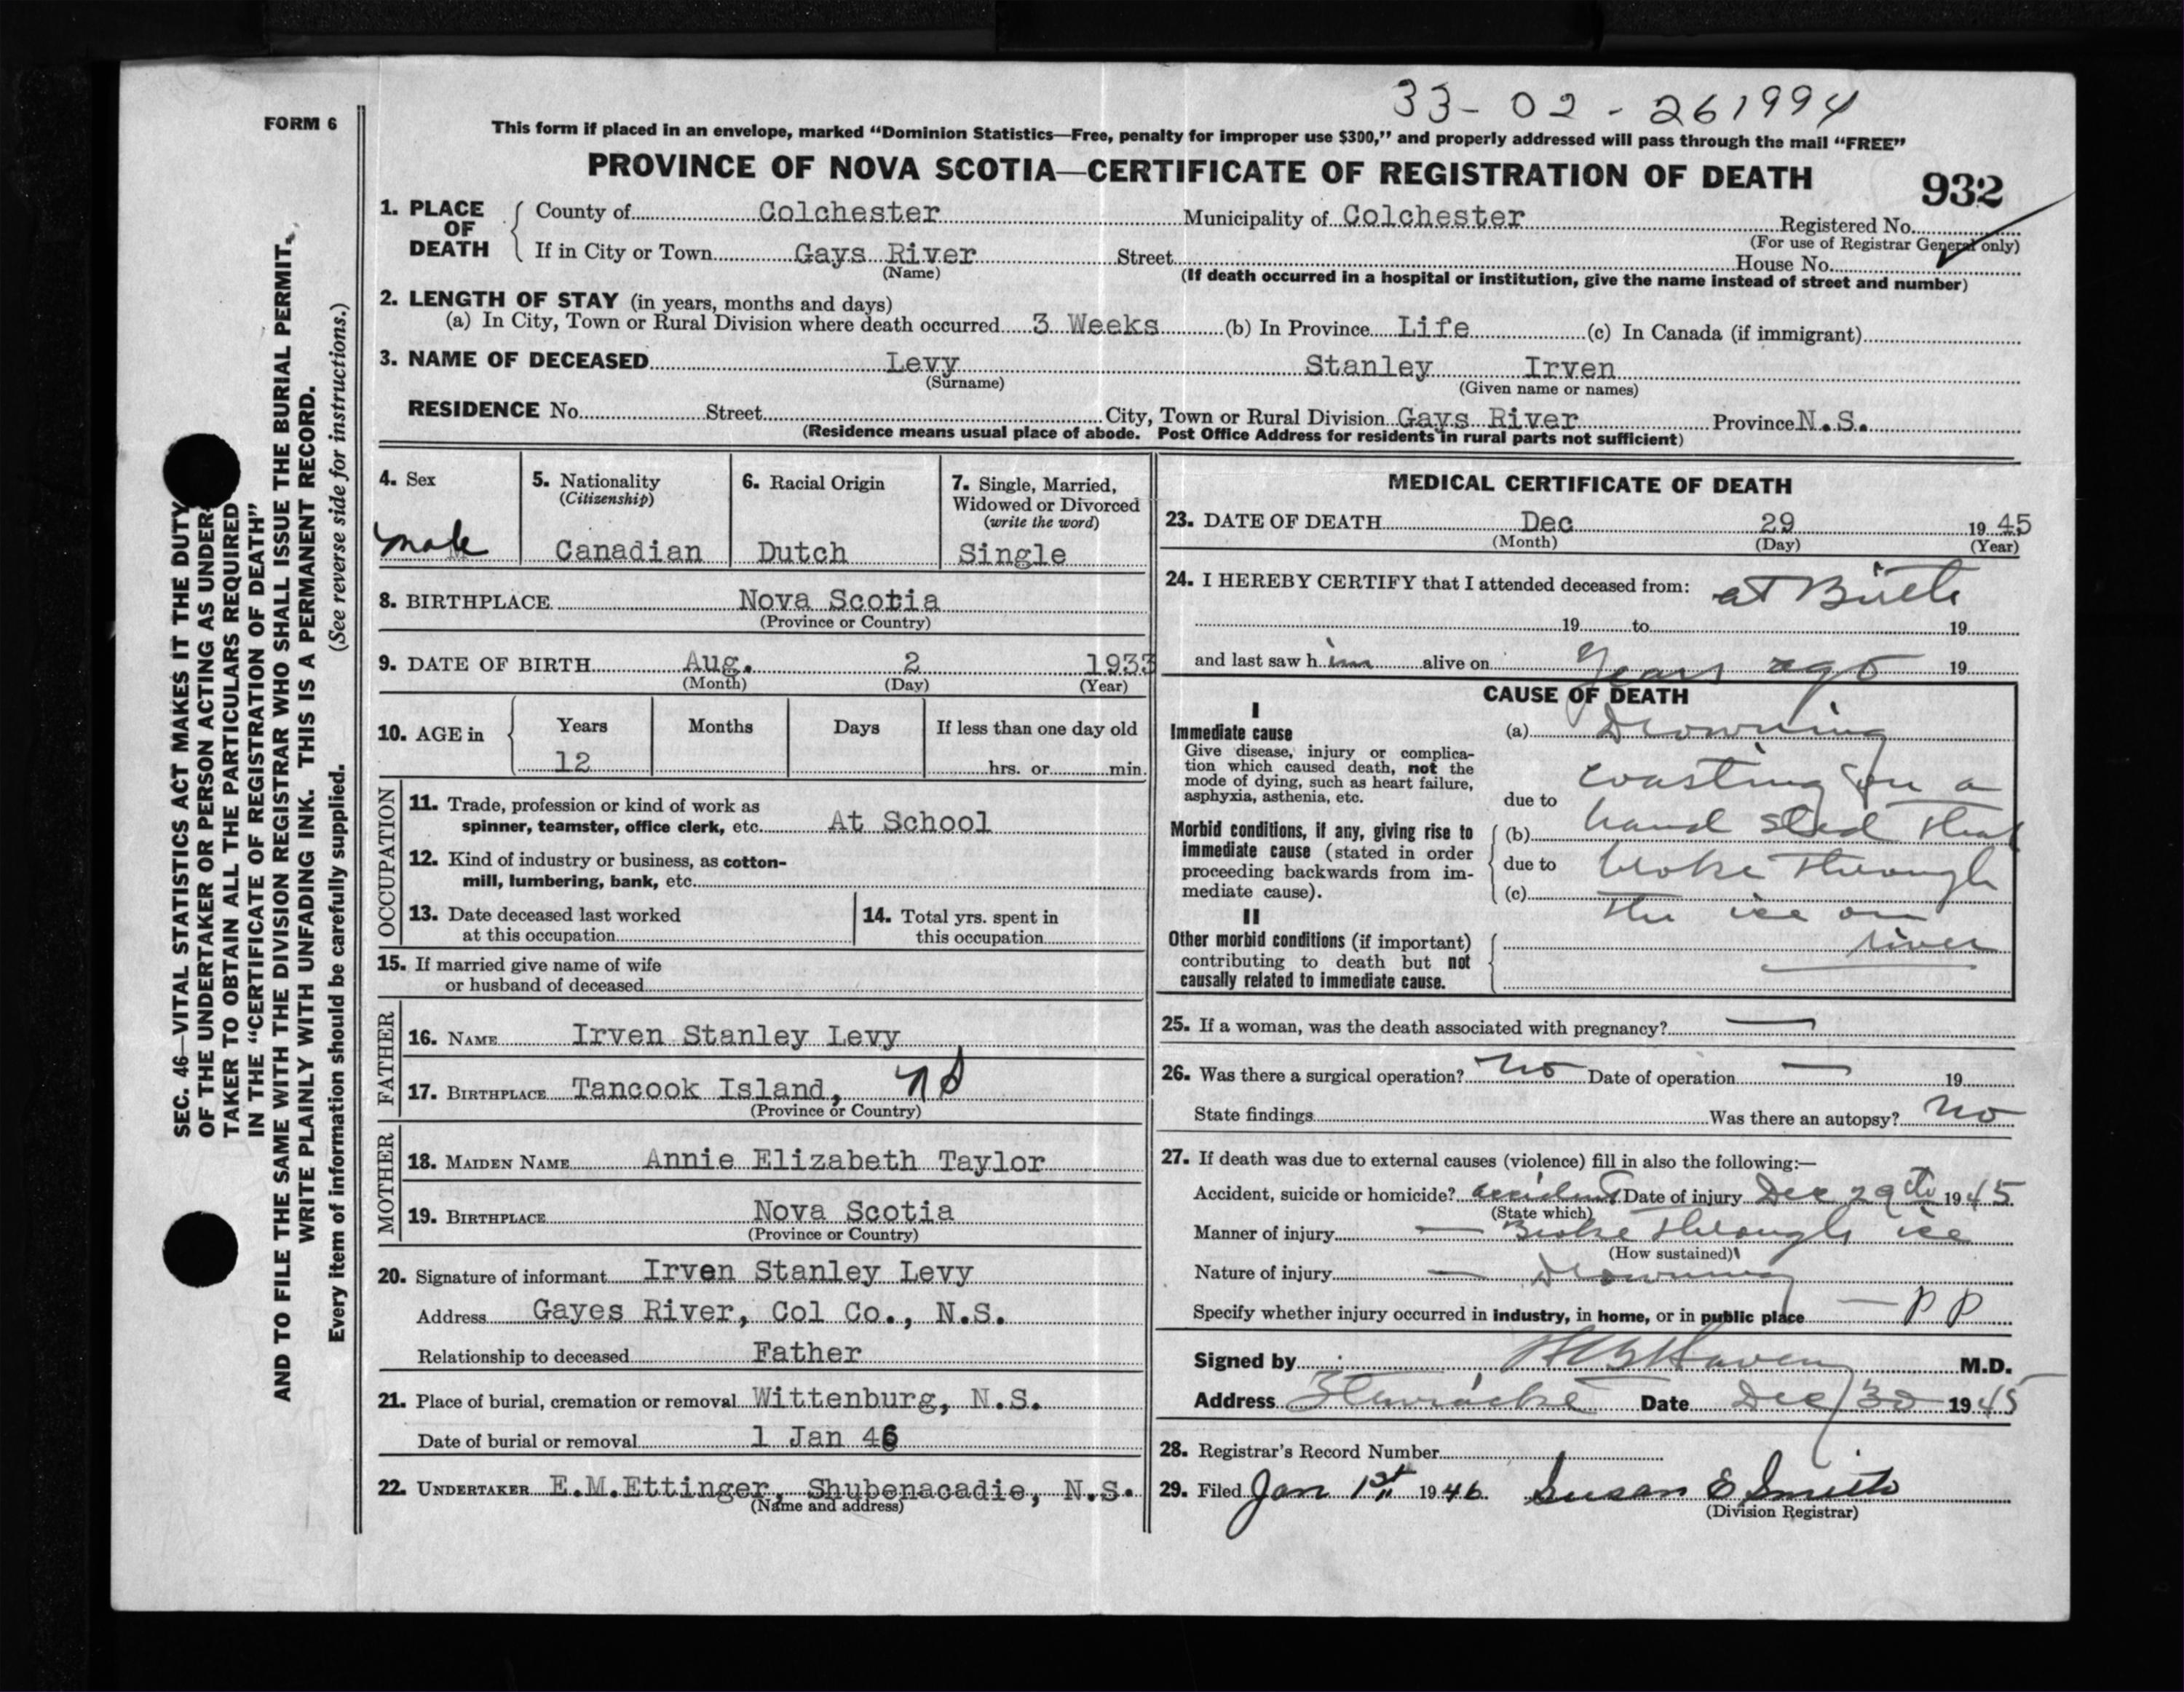 33-02-261994
FORM 6
This form if placed in an envelope, marked "Dominion Statistics—Free, penalty for improper use $300," and properly addressed will pass through the mail "FREE"
PROVINCE OF NOVA SCOTIA—CERTIFICATE OF REGISTRATION OF DEATH 932
1. PLACE OF DEATH County of Colchester Municipality of Colchester Registered No.
(For use of Registrar General only)
If in City or Town Gays River Street House No.
(Name) (If death occurred in a hospital or institution, give the name instead of street and number)
2. LENGTH OF STAY (in years, months and days)
(a) In City, Town or Rural Division where death occurred 3 Weeks (b) In Province Life (c) In Canada (if immigrant)
3. NAME OF DECEASED Levy Stanley Irven
(Surname) (Given name or names)
RESIDENCE No. Street City, Town or Rural Division Gays River Province N.S.
(Residence means usual place of abode. Post Office Address for residents in rural parts not sufficient)
4. Sex
male
5. Nationality
(Citizenship)
Canadian
6. Racial Origin
Dutch
7. Single, Married,
Widowed or Divorced
(write the word)
Single
8. BIRTHPLACE Nova Scotia
(Province or Country)
9. DATE OF BIRTH Aug. 2 1933
(Month) (Day) (Year)
10. AGE in Years Months Days If less than one day old
12 hrs. or min.
OCCUPATION
11. Trade, profession or kind of work as
spinner, teamster, office clerk, etc. At School
12. Kind of industry or business, as cotton-
mill, lumbering, bank, etc.
13. Date deceased last worked
at this occupation
14. Total yrs. spent in
this occupation
15. If married give name of wife
or husband of deceased
FATHER
16. NAME Irven Stanley Levy
17. BIRTHPLACE Tancook Island, NS
(Province or Country)
MOTHER
18. MAIDEN NAME Annie Elizabeth Taylor
19. BIRTHPLACE Nova Scotia
(Province or Country)
20. Signature of informant Irven Stanley Levy
Address Gayes River, Col Co., N.S.
Relationship to deceased Father
21. Place of burial, cremation or removal Wittenburg, N.S.
Date of burial or removal 1 Jan 46
22. UNDERTAKER E.M.Ettinger, Shubenacadie, N.S.
(Name and address)
MEDICAL CERTIFICATE OF DEATH
23. DATE OF DEATH Dec 29 1945
(Month) (Day) (Year)
24. I HEREBY CERTIFY that I attended deceased from: at Birth
19 to 19
and last saw him alive on Years ago 19
CAUSE OF DEATH
I
Immediate cause
Give disease, injury or complica-
tion which caused death, not the
mode of dying, such as heart failure,
asphyxia, asthenia, etc.
Morbid conditions, if any, giving rise to
immediate cause (stated in order
proceeding backwards from im-
mediate cause).
II
Other morbid conditions (if important)
contributing to death but not
causally related to immediate cause.
(a) Drowning
due to coasting on a
(b) hand sled that
due to broke through
(c) the ice on
river
25. If a woman, was the death associated with pregnancy? —
26. Was there a surgical operation? no Date of operation — 19
State findings Was there an autopsy? no
27. If death was due to external causes (violence) fill in also the following:—
Accident, suicide or homicide? accident Date of injury Dec 29th 1945
(State which)
Manner of injury — Broke through ice
(How sustained)
Nature of injury — Drowning
Specify whether injury occurred in industry, in home, or in public place — P P
Signed by M.D.
Address Date Dec 30 1945
28. Registrar's Record Number
29. Filed Jan 1st 1946 Susan E Smith
(Division Registrar)
SEC. 46—VITAL STATISTICS ACT MAKES IT THE DUTY
OF THE UNDERTAKER OR PERSON ACTING AS UNDER-
TAKER TO OBTAIN ALL THE PARTICULARS REQUIRED
IN THE "CERTIFICATE OF REGISTRATION OF DEATH"
AND TO FILE THE SAME WITH THE DIVISION REGISTRAR WHO SHALL ISSUE THE BURIAL PERMIT.
WRITE PLAINLY WITH UNFADING INK. THIS IS A PERMANENT RECORD.
Every item of information should be carefully supplied. (See reverse side for instructions.)